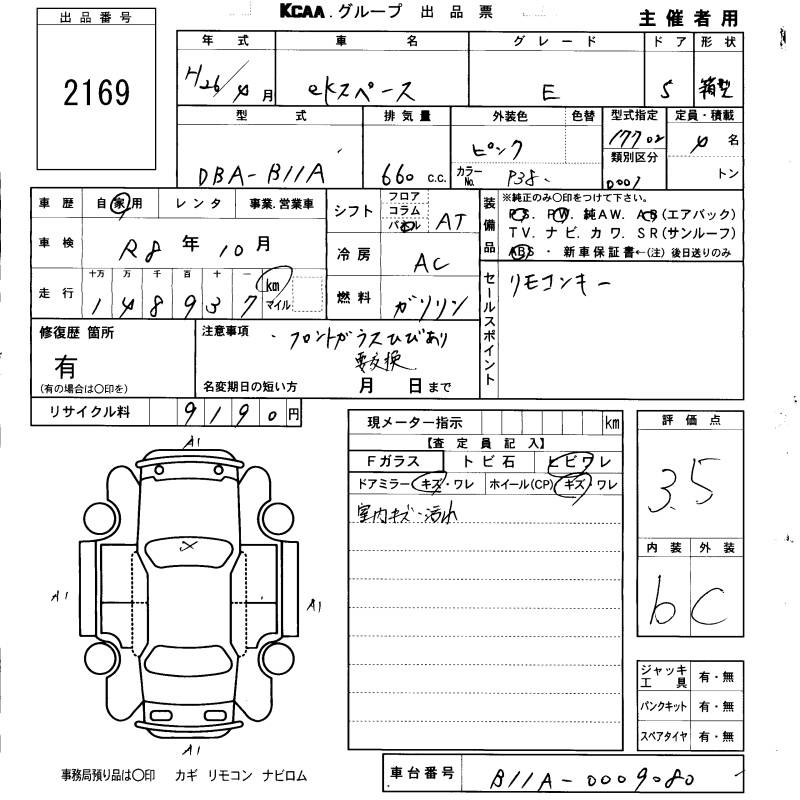 KCAA.グループ 出品票
主催者用
出品番号
2169
年式 車名 グレード ドア 形状
H26/4月 eKスペース E 5 箱型
型式 排気量 外装色 色替 型式指定 定員・積載
DBA-B11A 660 c.c. ピンク 17702 4名
カラーNo. P38 類別区分 0001 トン
車歴 自家用 レンタ 事業.営業車
車検 R8年10月
走行 十万 万 千 百 十 一 km マイル
148937
シフト フロア コラム パネル AT
冷房 AC
燃料 ガソリン
装備品 ※純正のみ〇印をつけて下さい。
PS. PW. 純AW. AB(エアバック)
TV. ナビ. カワ. SR(サンルーフ)
ABS ・ 新車保証書←(注) 後日送りのみ
セールスポイント リモコンキー
修復歴 箇所
有
(有の場合は〇印を)
注意事項 ・フロントガラスひびあり
要交換
名変期日の短い方 月 日まで
リサイクル料 9190円
現メーター指示 km
【査定員記入】
Fガラス トビ石 ヒビワレ
ドアミラー キズ・ワレ ホイール(CP) キズ・ワレ
室内キズ・汚れ
評価点
3.5
内装 外装
b C
A1
A1
A1
A1
×
ジャッキ工具 有・無
パンクキット 有・無
スペアタイヤ 有・無
事務局預り品は〇印 カギ リモコン ナビロム
車台番号 B11A-0009080